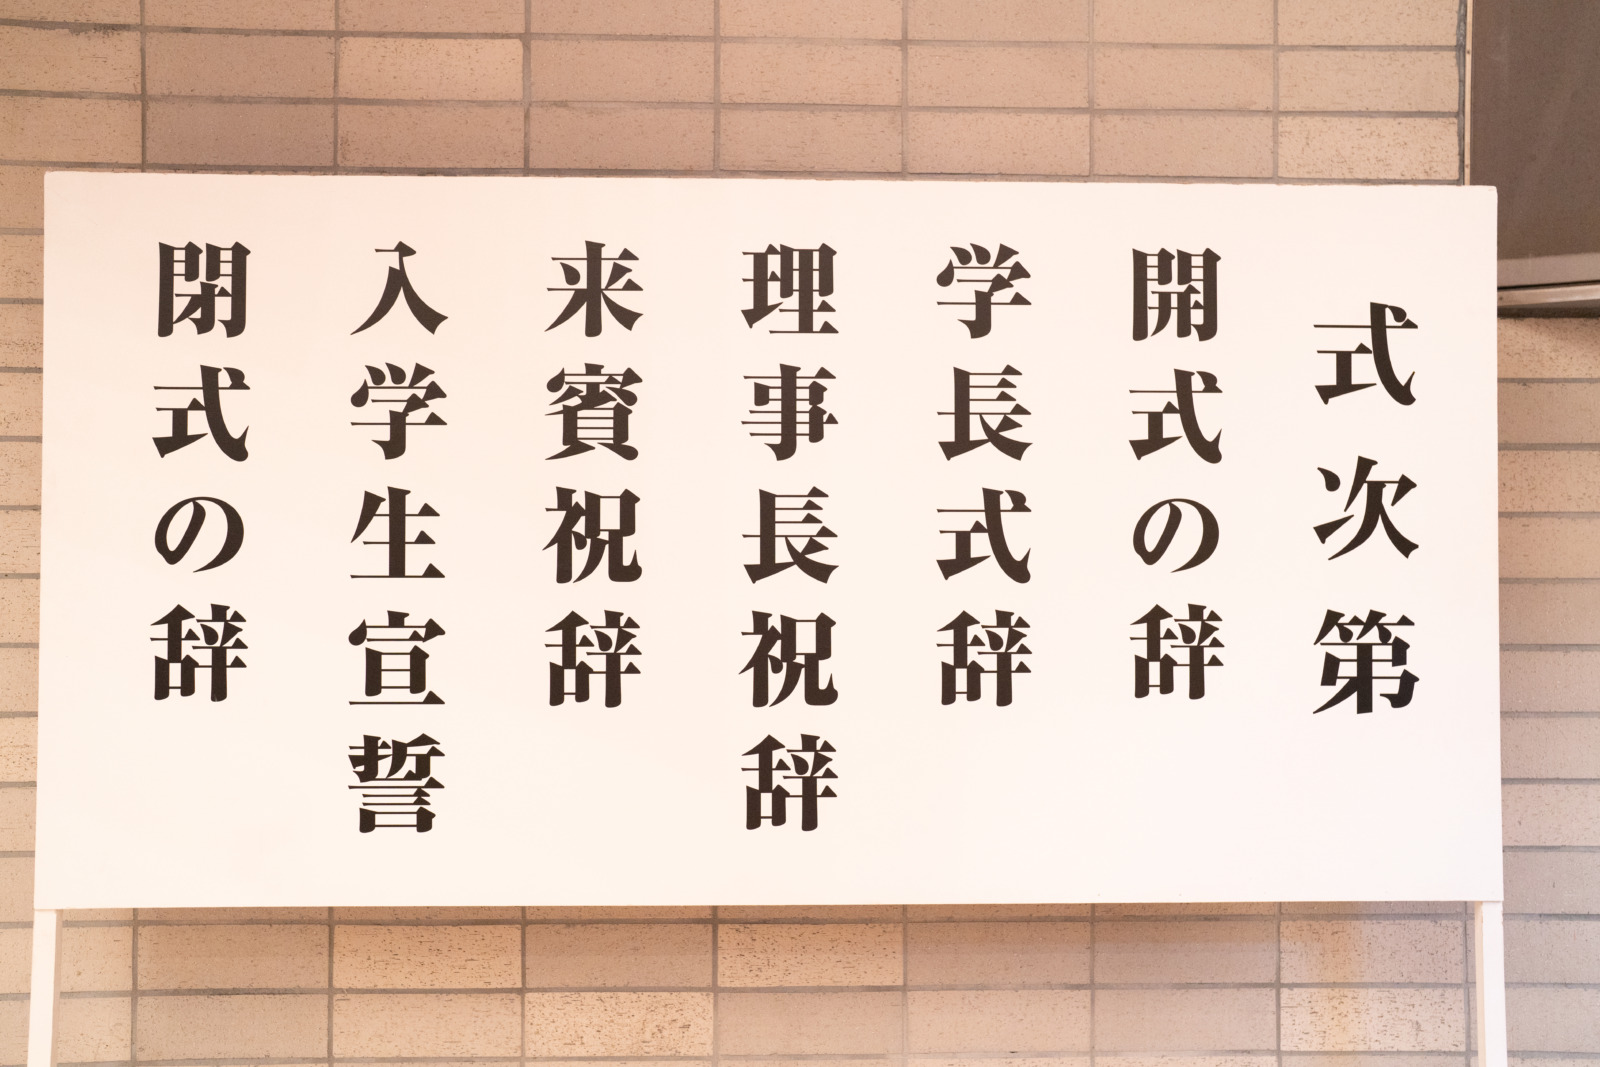 式次第
開式の辞
学長式辞
理事長祝辞
来賓祝辞
入学生宣誓
閉式の辞